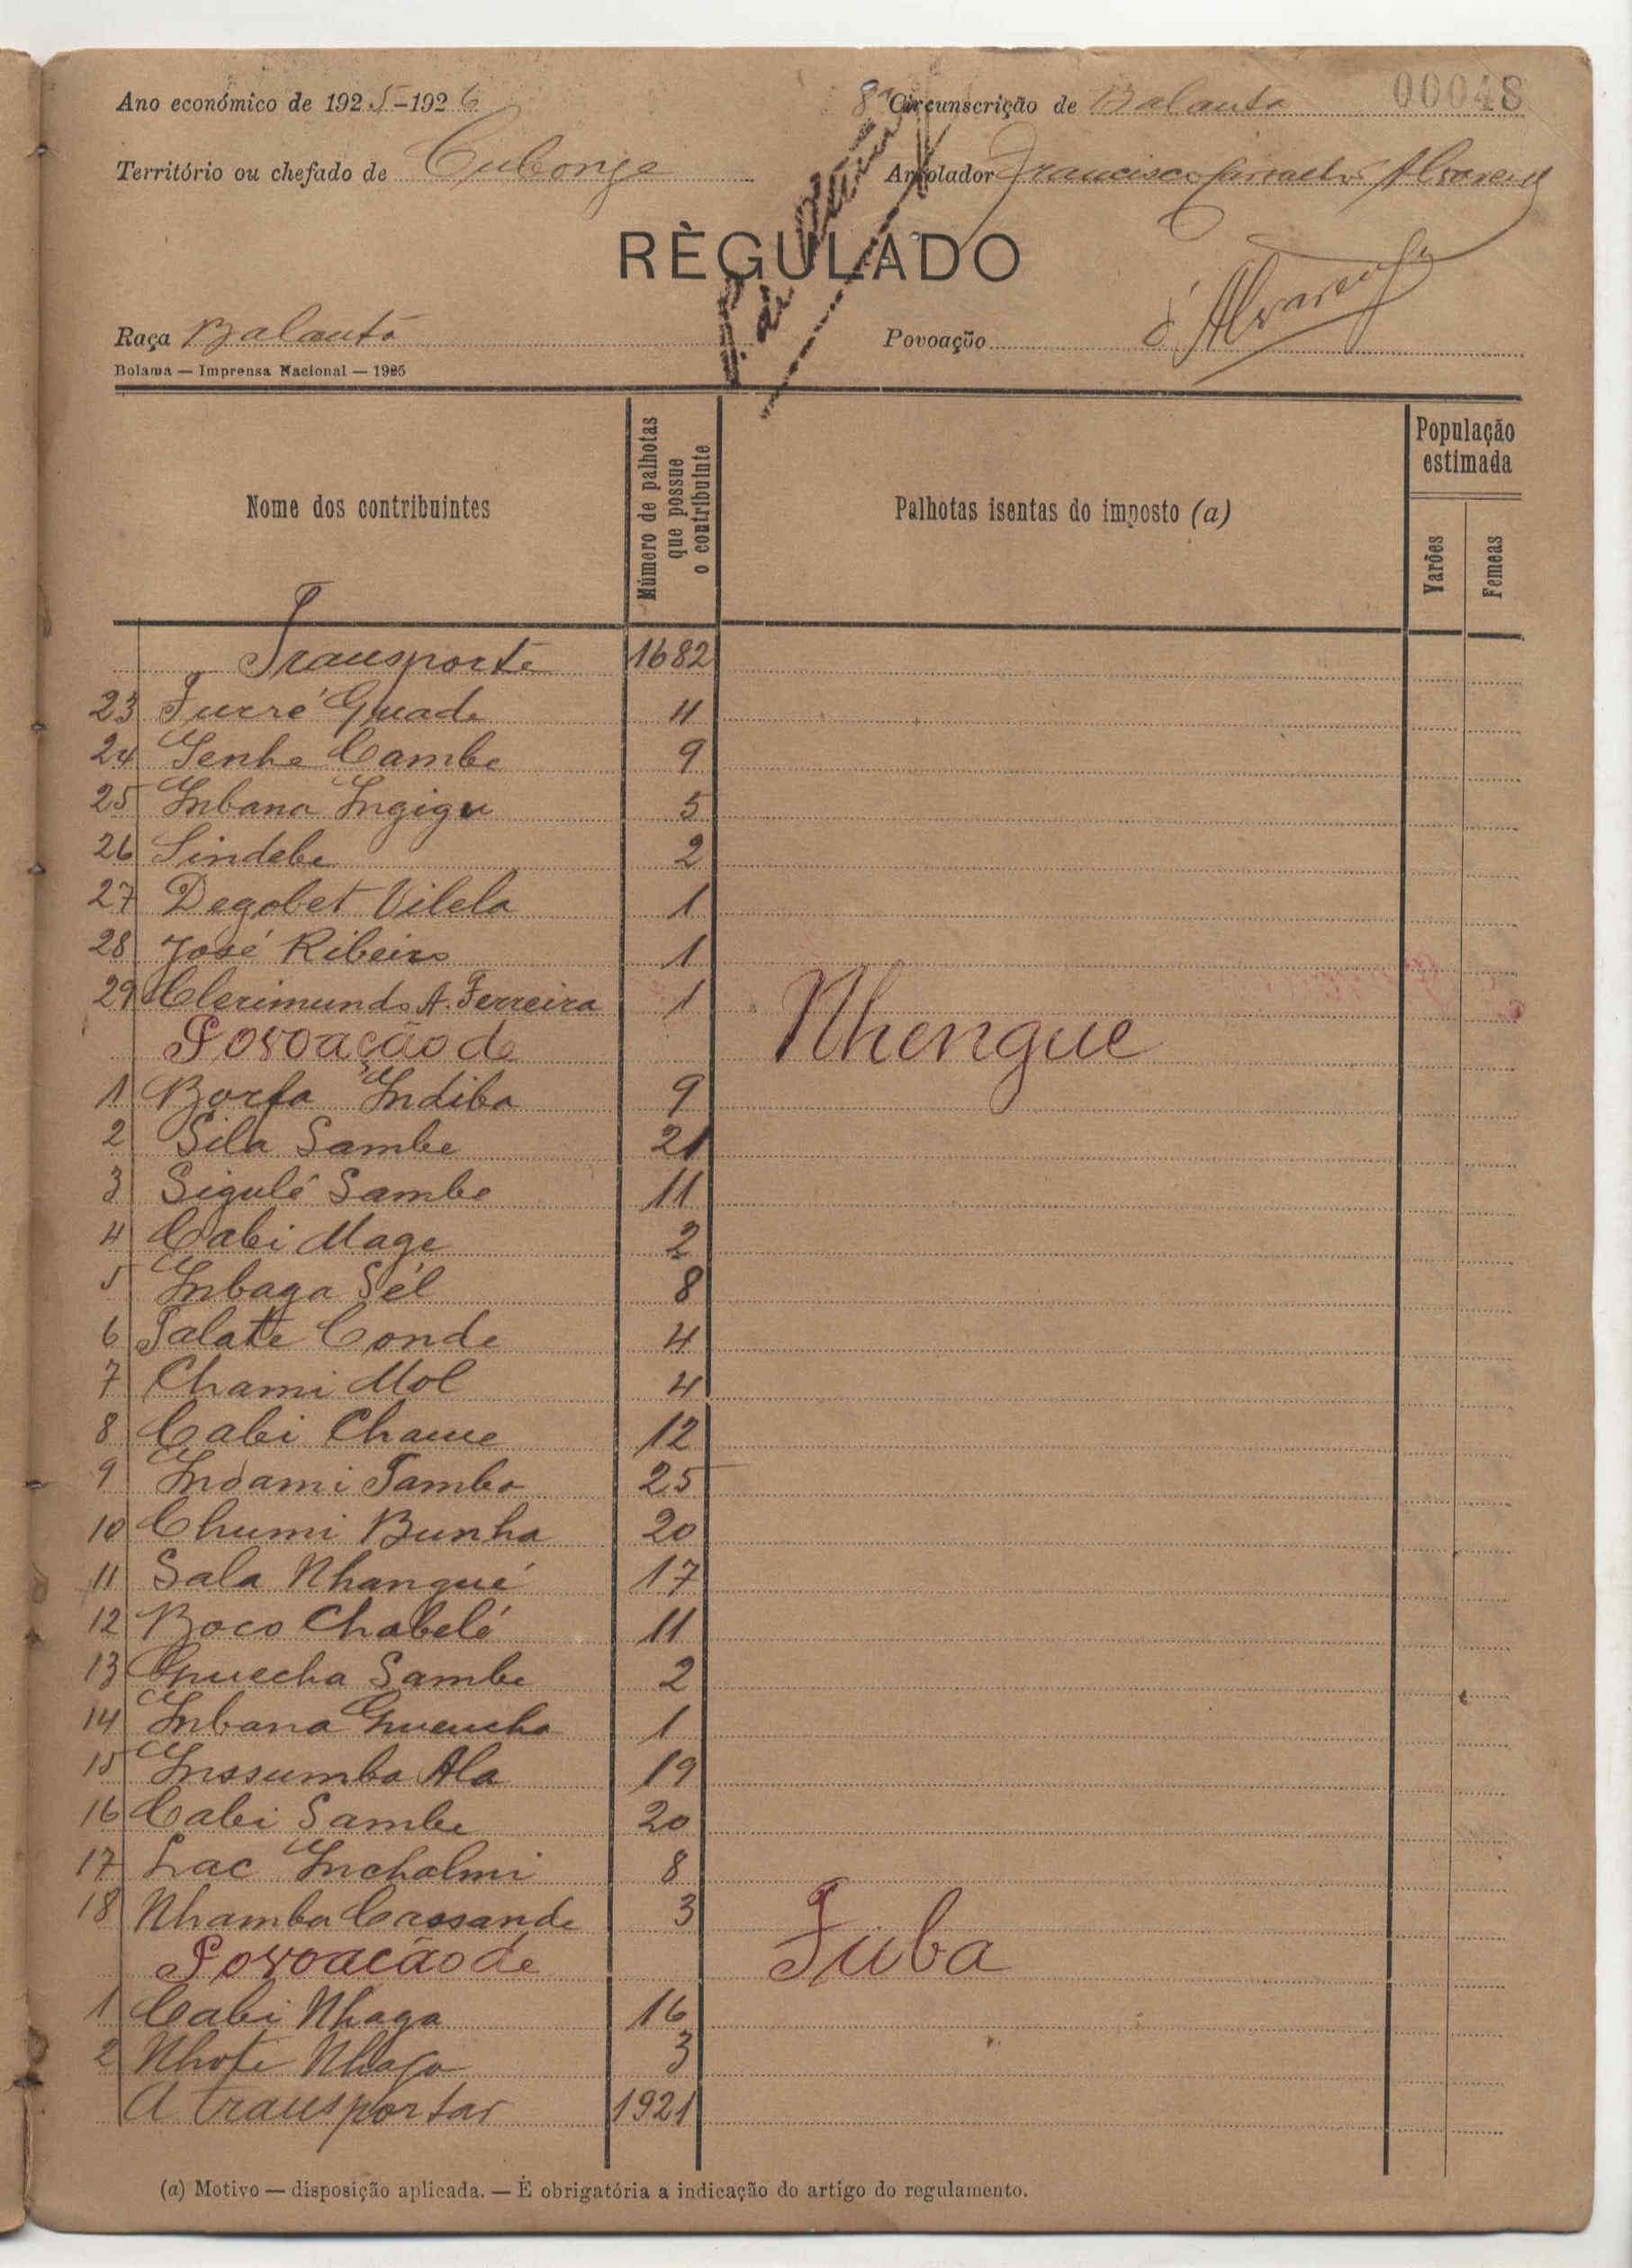 Ano económico de 1925-1926
8ª Circunscrição de Balanta
00048
Território ou chefado de Cubonge
Arrolador Francisco Carvalho Alvarenga
RÈGULADO
Raça Balanta
Povoação
Alvarenga
Bolama — Imprensa Nacional — 1925
Nome dos contribuintes
Número de palhotas que possue o contribuinte
Palhotas isentas do imposto (a)
População estimada
Varões
Femeas
Transporte 1682
23 Furré Guade 4
24 Senhe Cambe 9
25 Inbana Ingigu 5
26 Sindebe 2
27 Degobet Vilela 1
28 José Ribeiro 1
29 Clerimundo A. Ferreira 1
Povoação de Nhengue
1 Borfa Indiba 9
2 Sila Sambe 21
3 Sigulé Sambe 11
4 Cabi Mage 2
5 Inbaga Sél 8
6 Talate Conde 4
7 Chami Mol 4
8 Cabi Chame 12
9 Indami Tamba 25
10 Chumi Bunha 20
11 Sala Nhangué 17
12 Boco Chabelé 11
13 Guecha Sambe 2
14 Inbana Guencha 1
15 Inssumba Ala 19
16 Cabi Sambe 20
17 Lac Incholmi 8
18 Nhamba Cassande 3
Povoação de Fuba
1 Cabi Nhaga 16
2 Nhote Nhaga 3
A transportar 1921
(a) Motivo — disposição aplicada. — É obrigatória a indicação do artigo do regulamento.